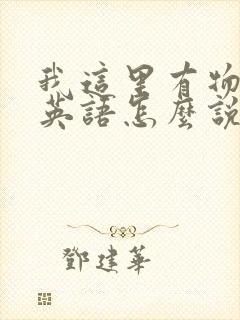 我這里有物
英語怎麼說
鄧建華